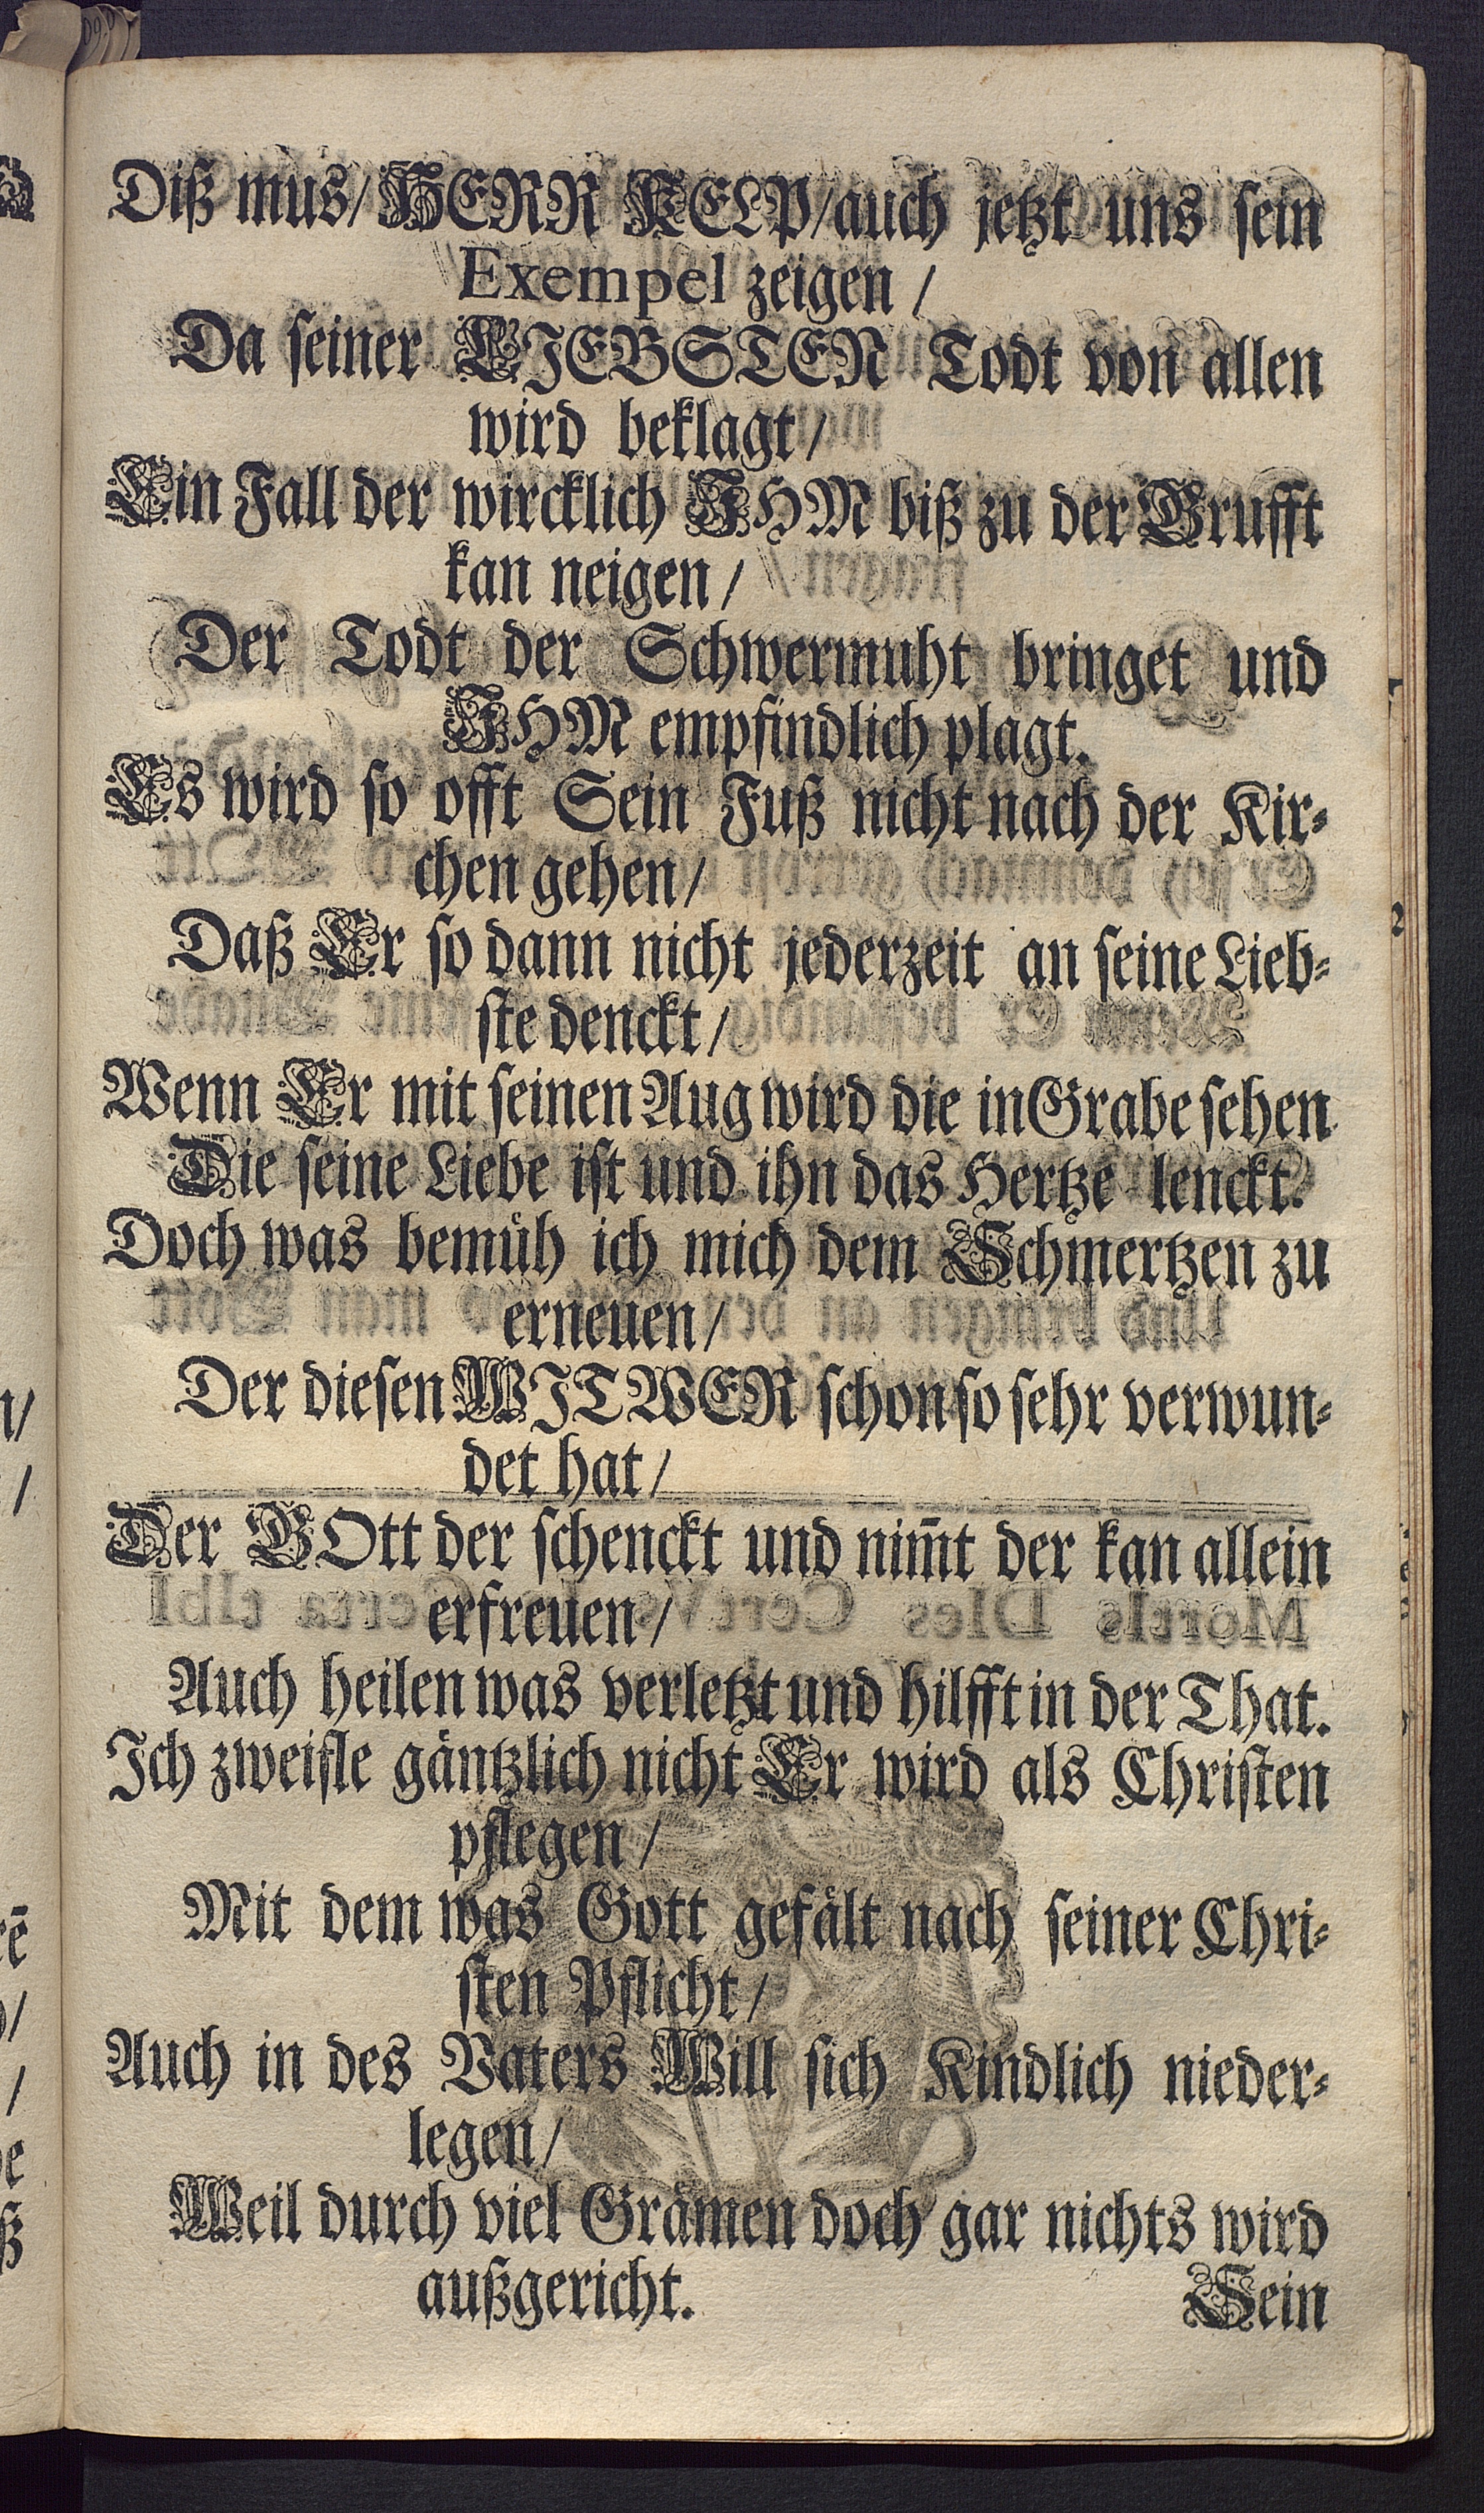 Diß mus/ HERR KELP/ auch jetzt uns sein
Exempel zeigen /
Da seiner LIEBSTEN Todt von allen
wird beklagt/
Ein Fall der wircklich IHM biß zu der Grufft
kan neigen/
Der Todt der Schwermuht bringet und
IHM empfindlich plagt.
Es wird so offt Sein Fuß nicht nach der Kir-
chen gehen/
Daß Er so dann nicht jederzeit an seine Lieb-
ste denckt/
Wenn Er mit seinen Aug wird die in Grabe sehen
Die seine Liebe ist und ihn das Hertze lenckt.
Doch was bemüh ich mich dem Schmertzen zu
erneuen/
Der diesen WITWER schon so sehr verwun-
det hat/
Der GOtt der schenckt und nim̃t der kan allein
erfreuen/
Auch heilen was verletzt und hilfft in der That.
Ich zweifle gäntzlich nicht Er wird als Christen
pflegen/
Mit dem was Gott gefält nach seiner Chri-
sten Pflicht/
Auch in des Vaters Will sich Kindlich nieder-
legen/
Weil durch viel Grämen doch gar nichts wird
außgericht.
Sein